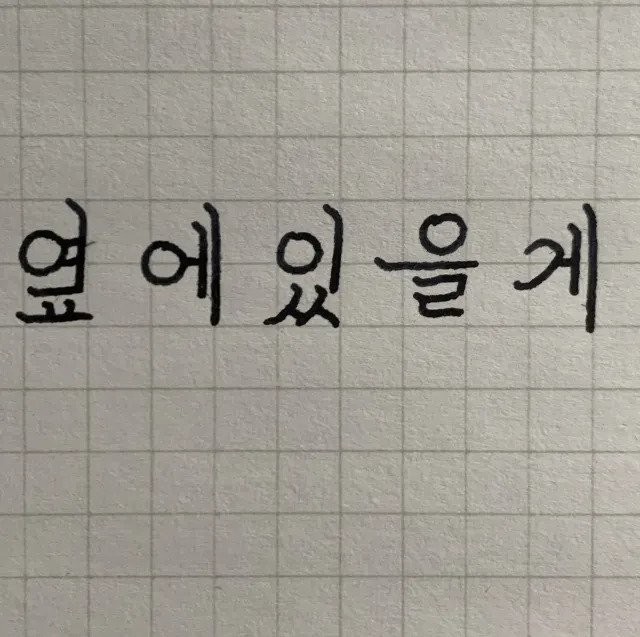 옆에있을게